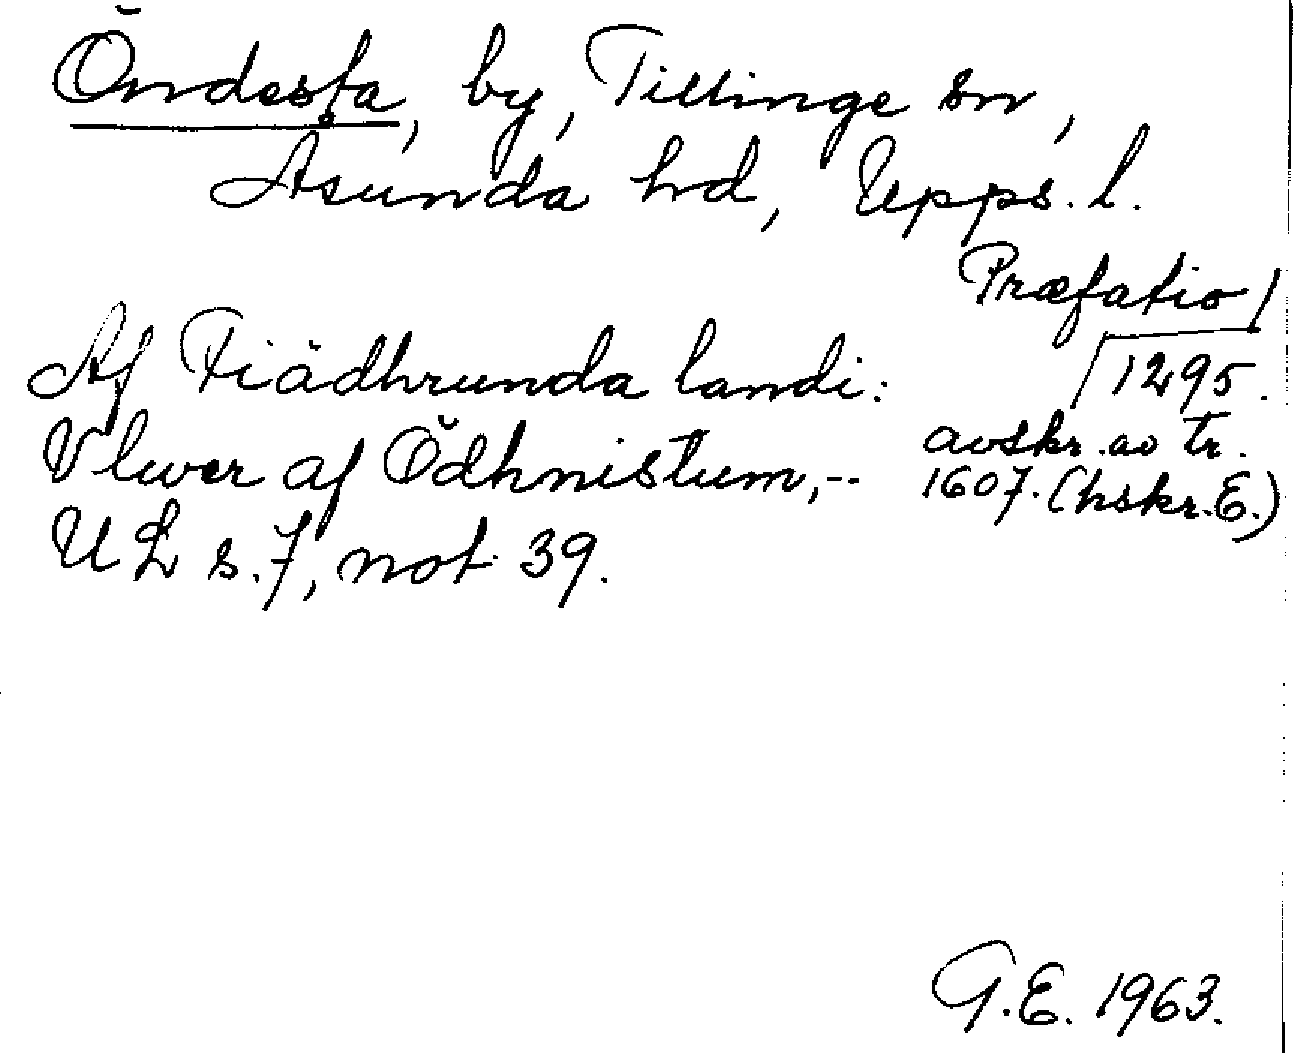 Öndesta, by, Tillinge sn,
Åsunda hd, Upps. l.
Præfatio
Af Fiädhrunda landi: 1295.
Vlwer af Ödhnistum,-- avskr. av tr.
1607. (hskr. E.)
UL s. 7, not 39.
G.E. 1963.